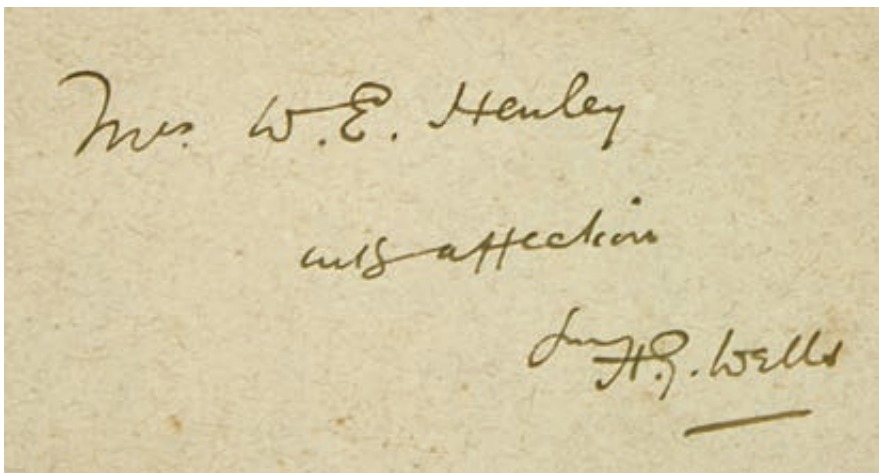 Mrs. W. E. Henley
with affection
from H. G. Wells